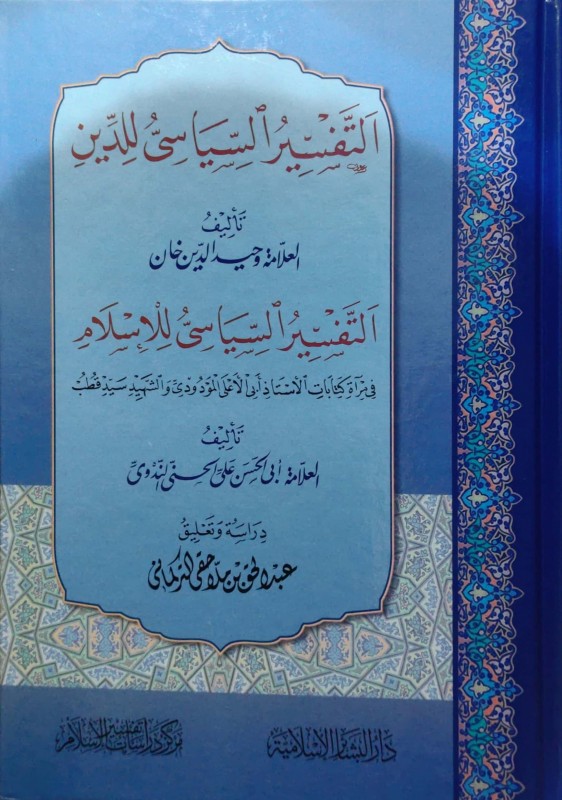 اَلتَّفْسِيرُ السِّيَاسِيُّ لِلدِّينِ
تَأْلِيفُ
العلّامة وحيد الدين خان
اَلتَّفْسِيرُ السِّيَاسِيُّ لِلْإِسْلَامِ
فِي مِرْآةِ كِتَابَاتِ الأُسْتَاذِ أَبِي الأَعْلَى المَوْدُودِيّ وَالشَّهِيدِ سَيِّدْ قُطْبُ
تَأْلِيفُ
العلّامة أبي الحَسَن عَلي الحَسَني النَّدْوِيّ
دِرَاسَة وَتَعْلِيق
عبد الحق بن ملا حقي التركماني
دَارُ البَشَائِرِ الإِسْلَامِيَّة
مركز دراسات تفسير الإسلام